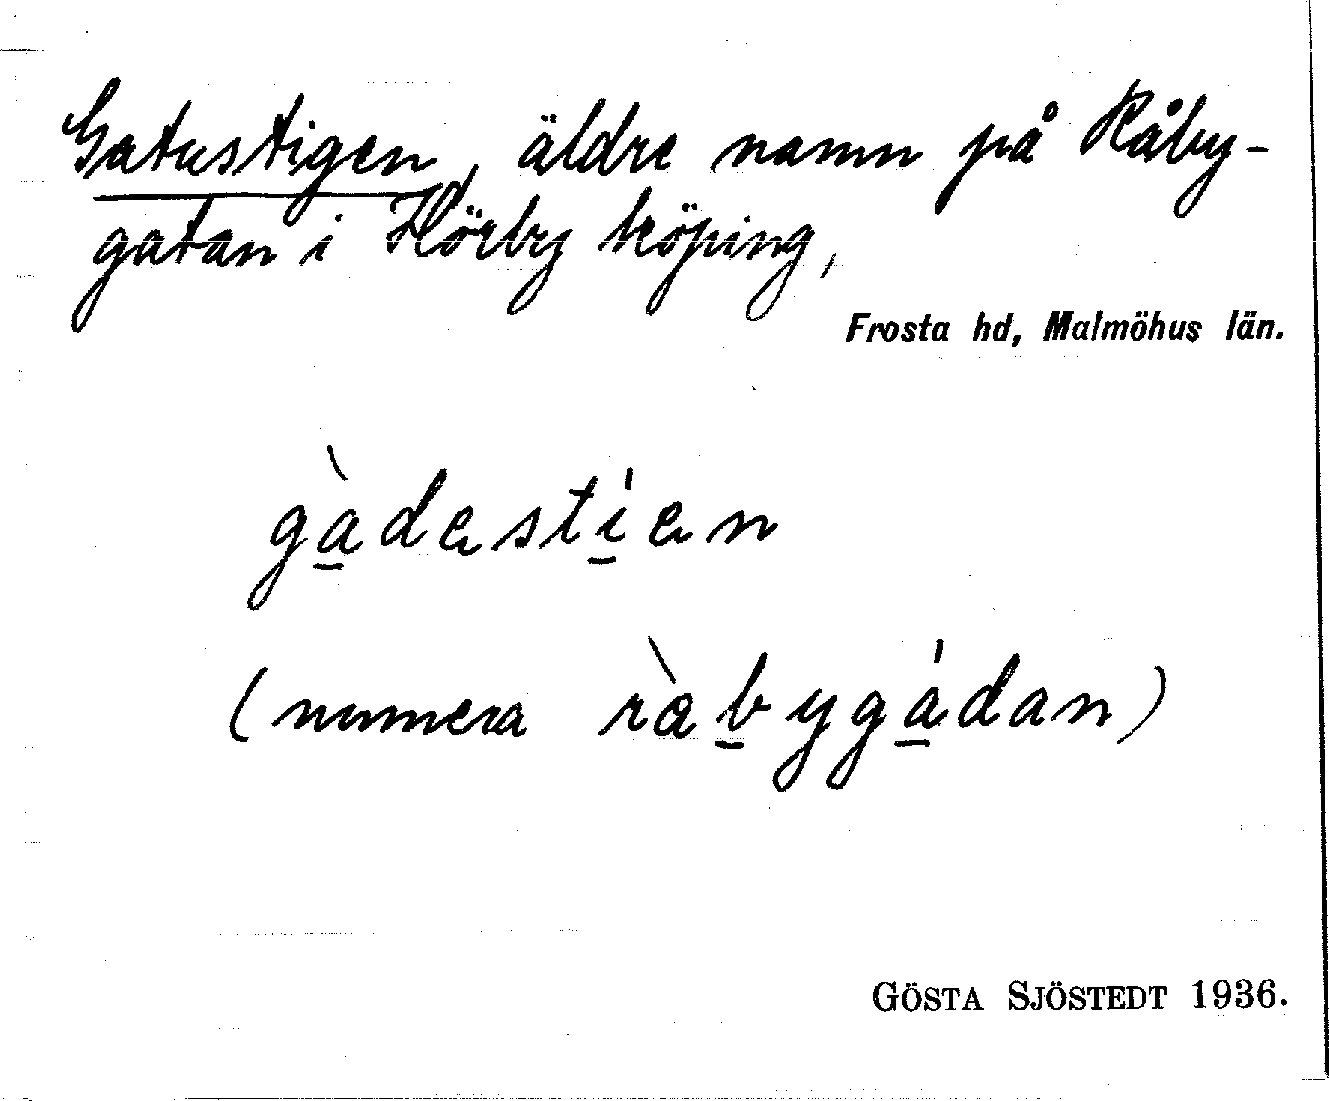 Gatustigen, äldre namn på Råby-
gatan i Hörby köping,
Frosta hd, Malmöhus län.
gàdastían
(numera ràbygádan)
GÖSTA SJÖSTEDT 1936.